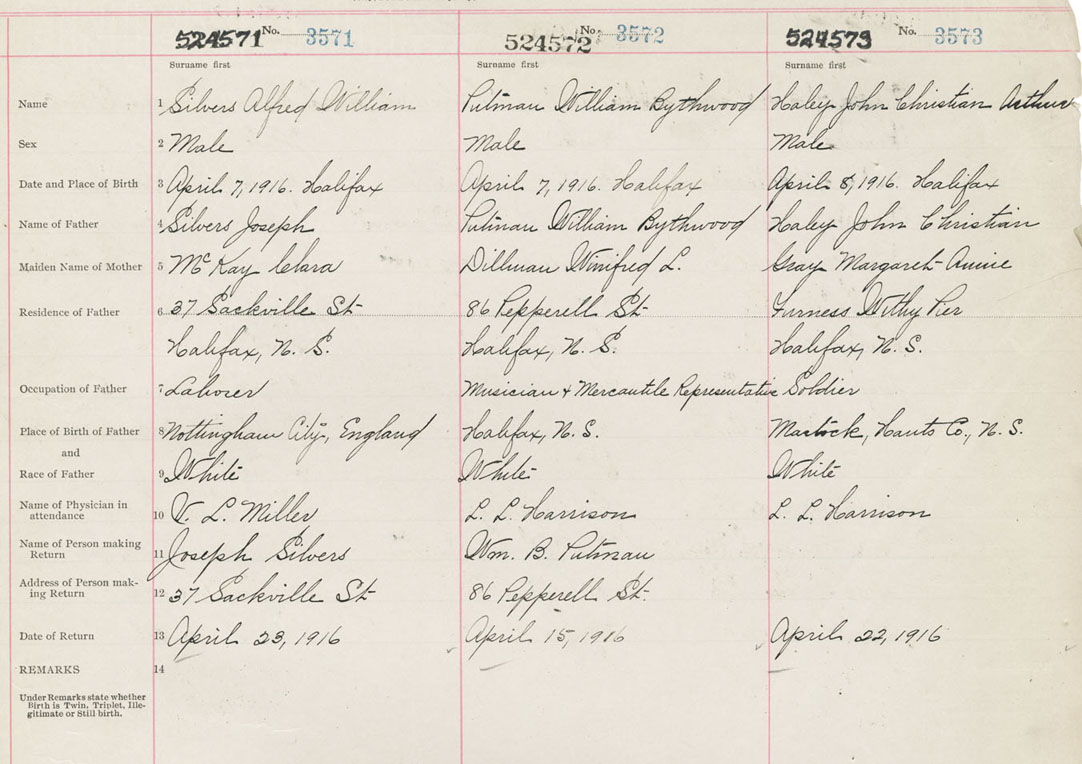 524571 No. 3571 524572 No. 3572 524573 No. 3573
Surname first Surname first Surname first
Name 1 Silvers Alfred William Putman William Bythwood Haley John Christian Arthur
Sex 2 Male Male Male
Date and Place of Birth 3 April 7, 1916. Halifax April 7, 1916. Halifax April 8, 1916. Halifax
Name of Father 4 Silvers Joseph Putman William Bythwood Haley John Christian
Maiden Name of Mother 5 McKay Clara Dillman Winifred L. Gray Margaret Annie
Residence of Father 6 37 Sackville St 86 Pepperell St. Furness Withy Pier
Halifax, N. S. Halifax, N. S. Halifax, N. S.
Occupation of Father 7 Laborer Musician + Mercantile Representative Soldier
Place of Birth of Father 8 Nottingham City, England Halifax, N. S. Martock, Hants Co., N. S.
and
Race of Father 9 White White White
Name of Physician in
attendance 10 V. L. Miller L. L. Harrison L. L. Harrison
Name of Person making
Return 11 Joseph Silvers Wm. B. Putman
Address of Person mak-
ing Return 12 37 Sackville St 86 Pepperell St.
Date of Return 13 April 23, 1916 April 15, 1916 April 22, 1916
REMARKS 14
Under Remarks state whether
Birth is Twin, Triplet, Ille-
gitimate or Still birth.